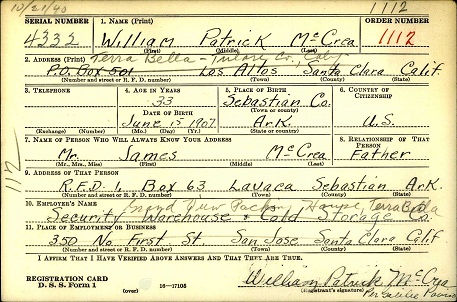 10/21/40
1112
SERIAL NUMBER 1. NAME (Print) ORDER NUMBER
4332 William Patrick McCrea 1112
(First) (Middle) (Last)
2. ADDRESS (Print) Terra Bella - Tulary Co. Calif
P.O. Box 501 Los Altos Santa Clara Calif.
(Number and street or R. F. D. number) (Town) (County) (State)
3. TELEPHONE 4. AGE IN YEARS 5. PLACE OF BIRTH 6. COUNTRY OF CITIZENSHIP
33 Sebastian Co.
DATE OF BIRTH (Town or county)
June 15 1907 Ark. U.S.
(Exchange) (Number) (Mo.) (Day) (Yr.) (State or country)
7. NAME OF PERSON WHO WILL ALWAYS KNOW YOUR ADDRESS 8. RELATIONSHIP OF THAT PERSON
Mr. James McCrea Father
(Mr., Mrs., Miss) (First) (Middle) (Last)
9. ADDRESS OF THAT PERSON
R.F.D. 1. Box 63 Lavaca Sebastian Ark.
(Number and street or R. F. D. number) (Town) (County) (State)
10. EMPLOYER'S NAME Grand View Packing House, Terra Bella
Security Warehouse & Cold Storage Co.
11. PLACE OF EMPLOYMENT OR BUSINESS
350 No. First St. San Jose Santa Clara Calif
(Number and street or R. F. D. number) (Town) (County) (State)
I AFFIRM THAT I HAVE VERIFIED ABOVE ANSWERS AND THAT THEY ARE TRUE.
REGISTRATION CARD
D. S. S. Form 1 16—17105 William Patrick McCrea
(Registrant's signature)
112